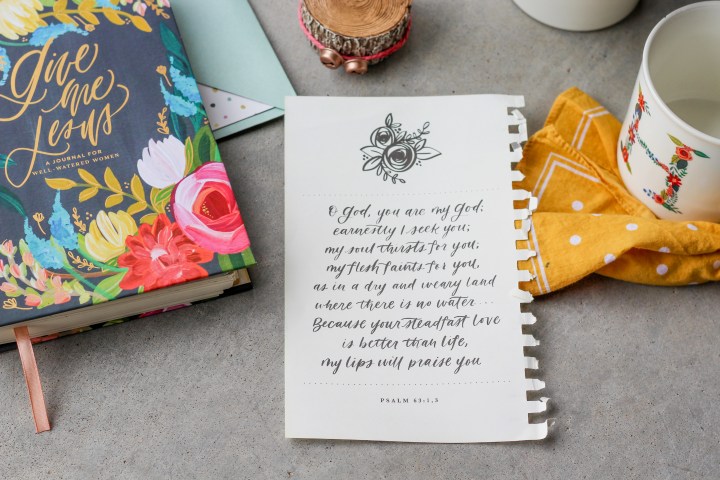 Give
me
Jesus
A JOURNAL FOR
WELL-WATERED WOMEN
O God, you are my God;
earnestly I seek you;
my soul thirsts for you;
my flesh faints for you,
as in a dry and weary land
where there is no water...
Because your steadfast love
is better than life,
my lips will praise you
PSALM 63:1,3
H